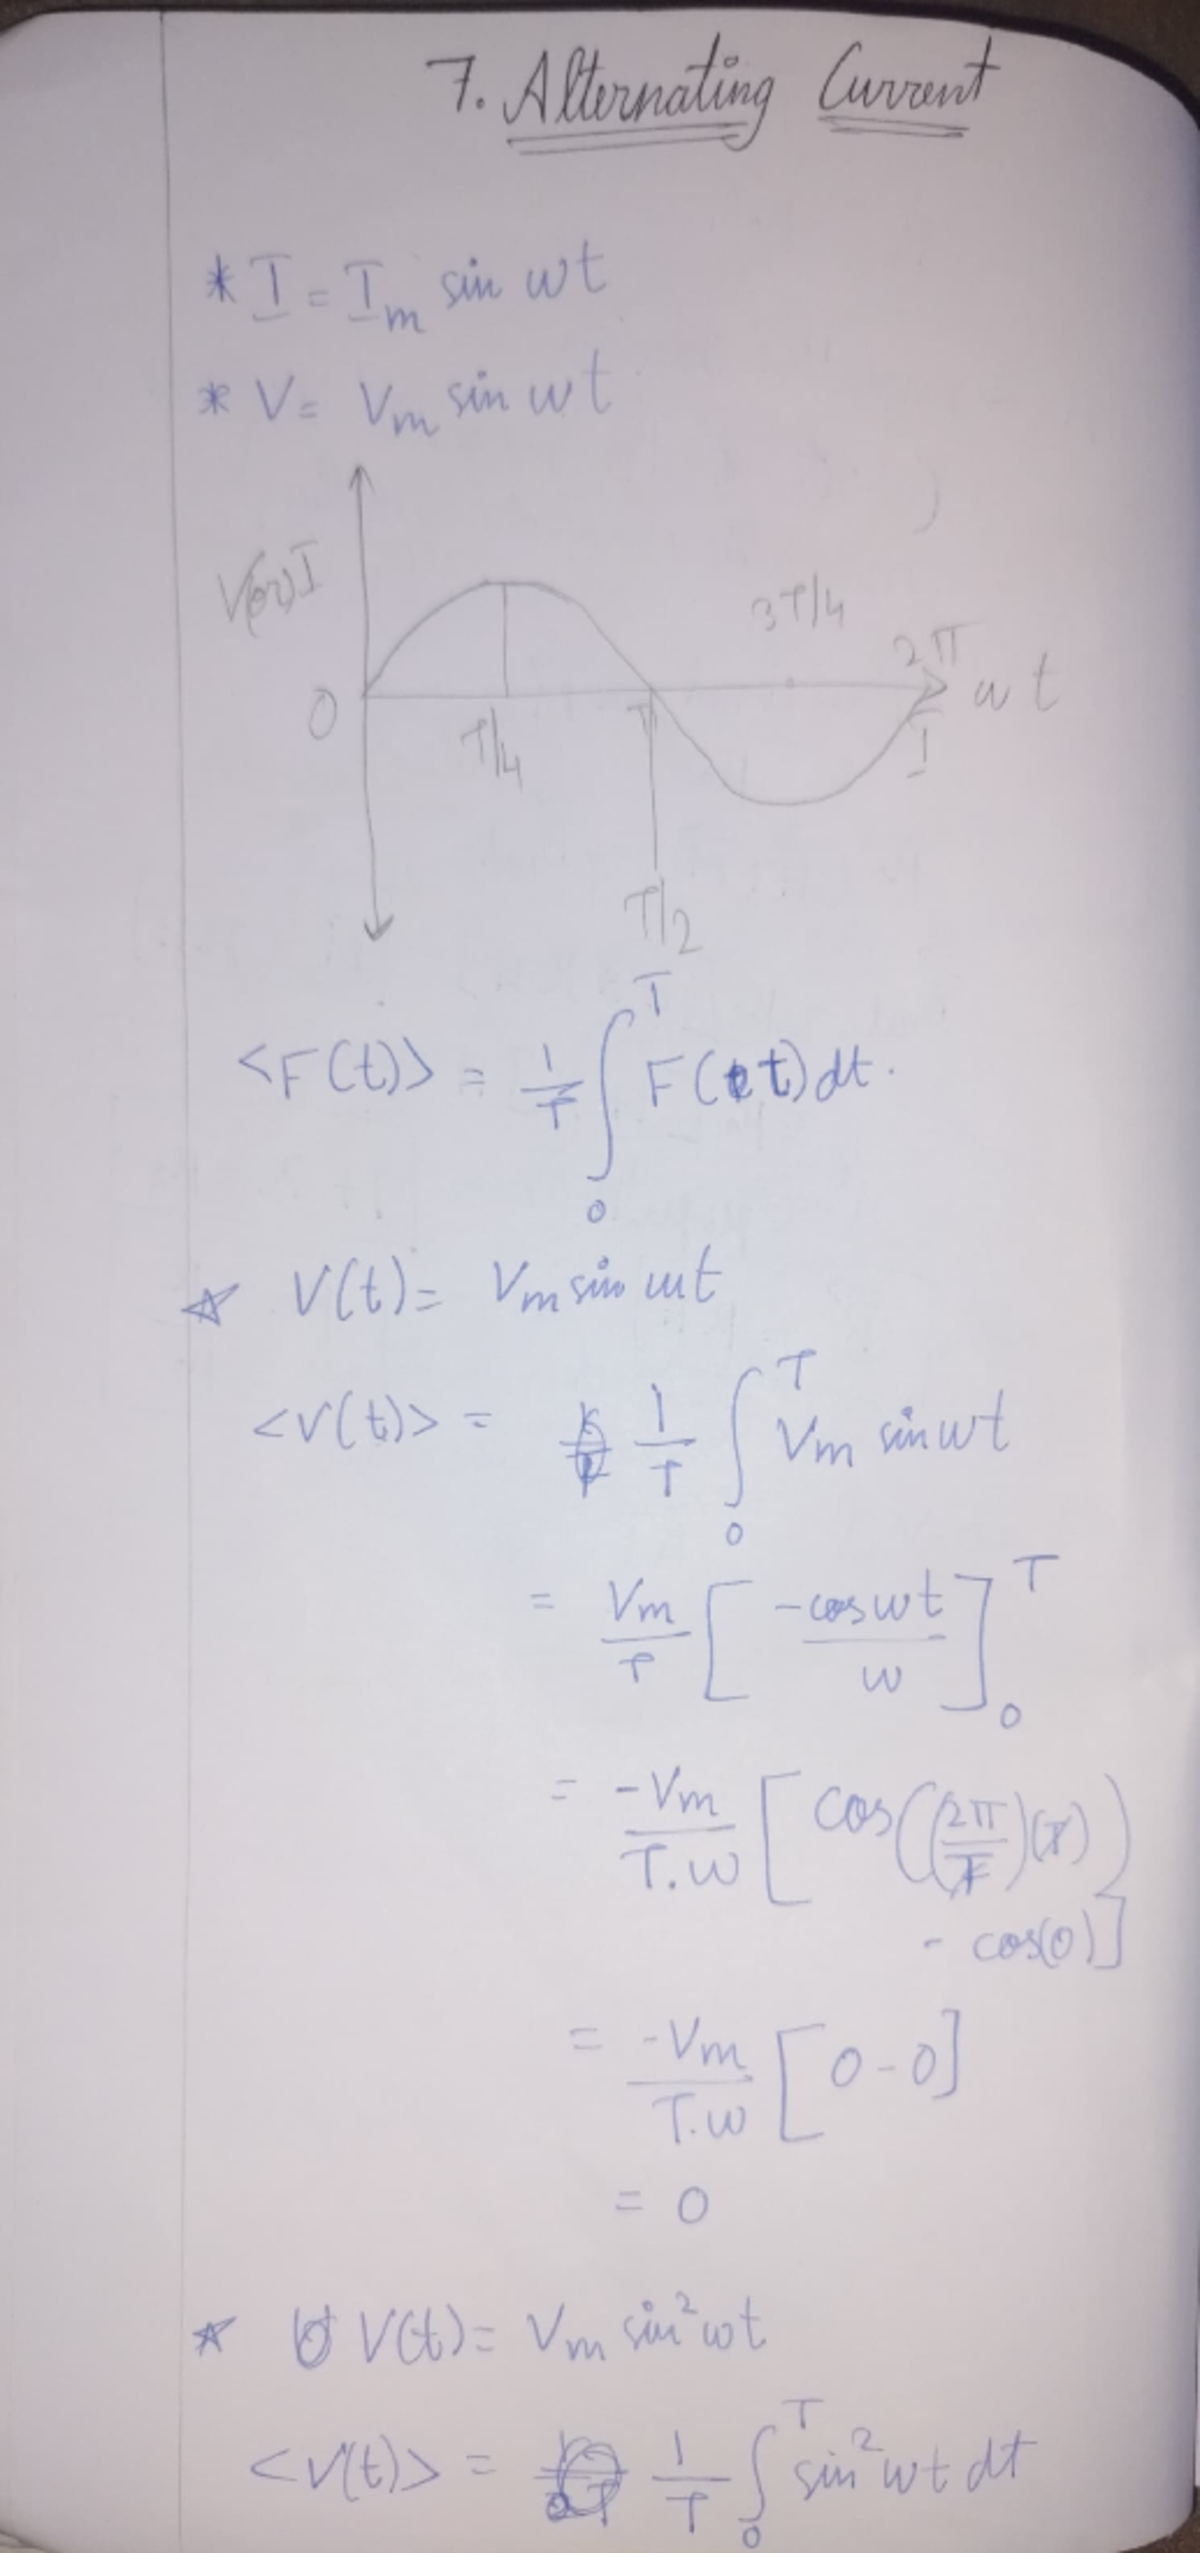 7. Alternating Current
* I = Iₘ sin wt
* V = Vₘ sin wt
V(or)I
3T/4
2π
0
wt
T/4
T
T/2
<F(t)> = 1/T ∫₀ᵀ F(t)dt.
☆ V(t) = Vₘ sin wt
<V(t)> = 1/T ∫₀ᵀ Vₘ sin wt
= Vₘ/T [-cos wt/w]₀ᵀ
= -Vₘ/T.w [cos((2π/T)(T))
- cos(0)]
= -Vₘ/T.w [0-0]
= 0
☆ V(t) = Vₘ sin²wt
<V(t)> = 1/T ∫₀ᵀ sin²wt dt